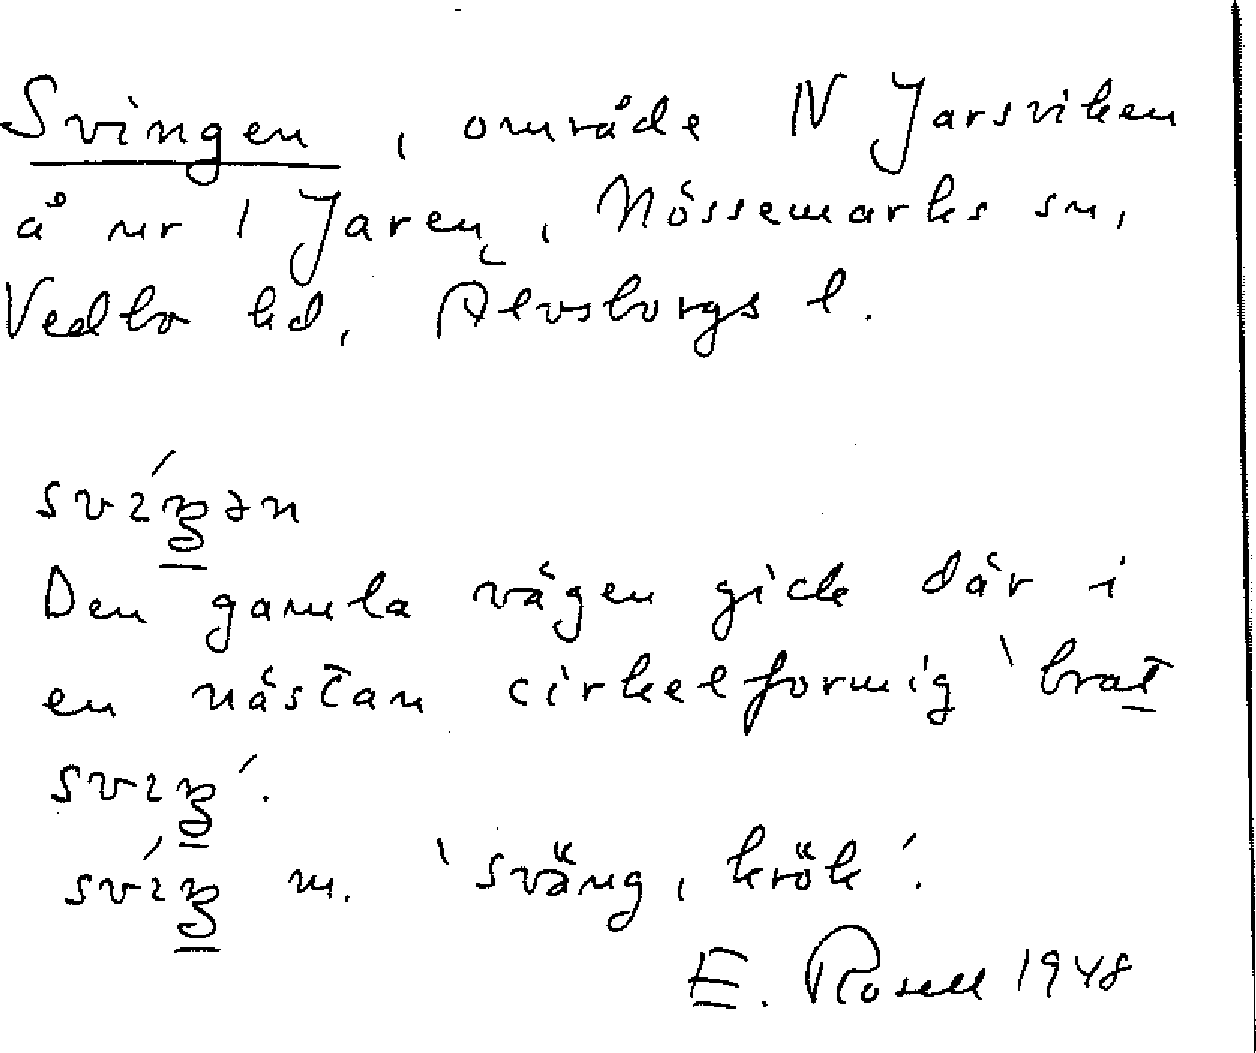 Svingen, område N Jarsviken
å nr 1 Jaren, Nössemarks sn,
Vedbo hd, Älvsborgs l.
Den gamla vägen gick där i
en nästan cirkelformig `brat
m. `sväng, krök´.
E. Rosell 1948